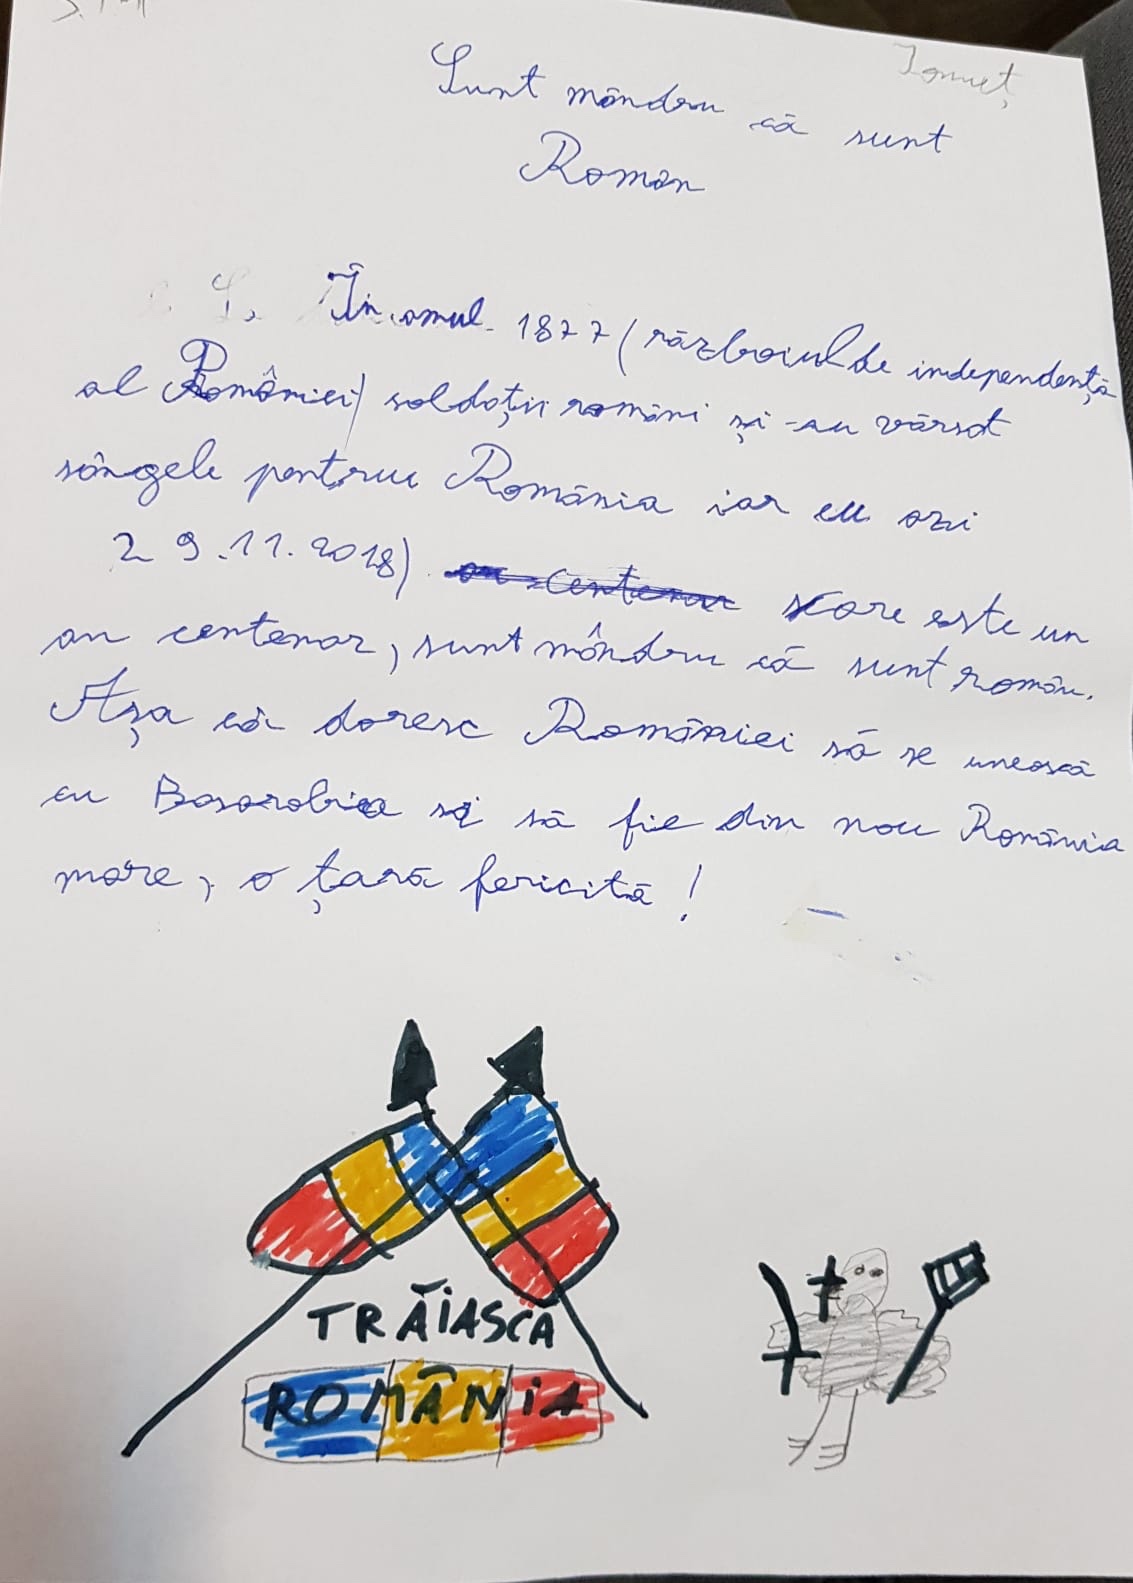 Ionuț
Sunt mândru că sunt
Român
În anul 1877 (războiul de independență
al României) soldații români și-au vărsat
sângele pentru România iar eu azi
29.11.2018) care este un
an centenar, sunt mândru că sunt român.
Așa că doresc României să se unească
cu Basarabia și să fie din nou România
mare, o țară fericită!
TRĂIASCĂ
ROMÂNIA